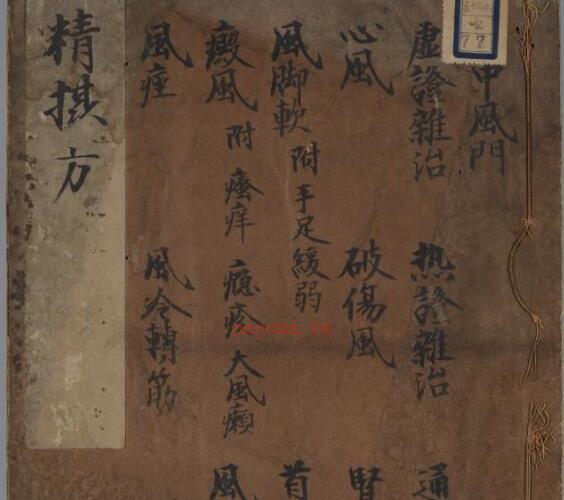 中風門
虛證雜治 熱證雜治 通
心風 破傷風 腎
風脚軟 附手足緩弱 首
癜風 附 瘙痒 癮疹 大風癩 風
風痓 風冷轉筋
精撰方
77